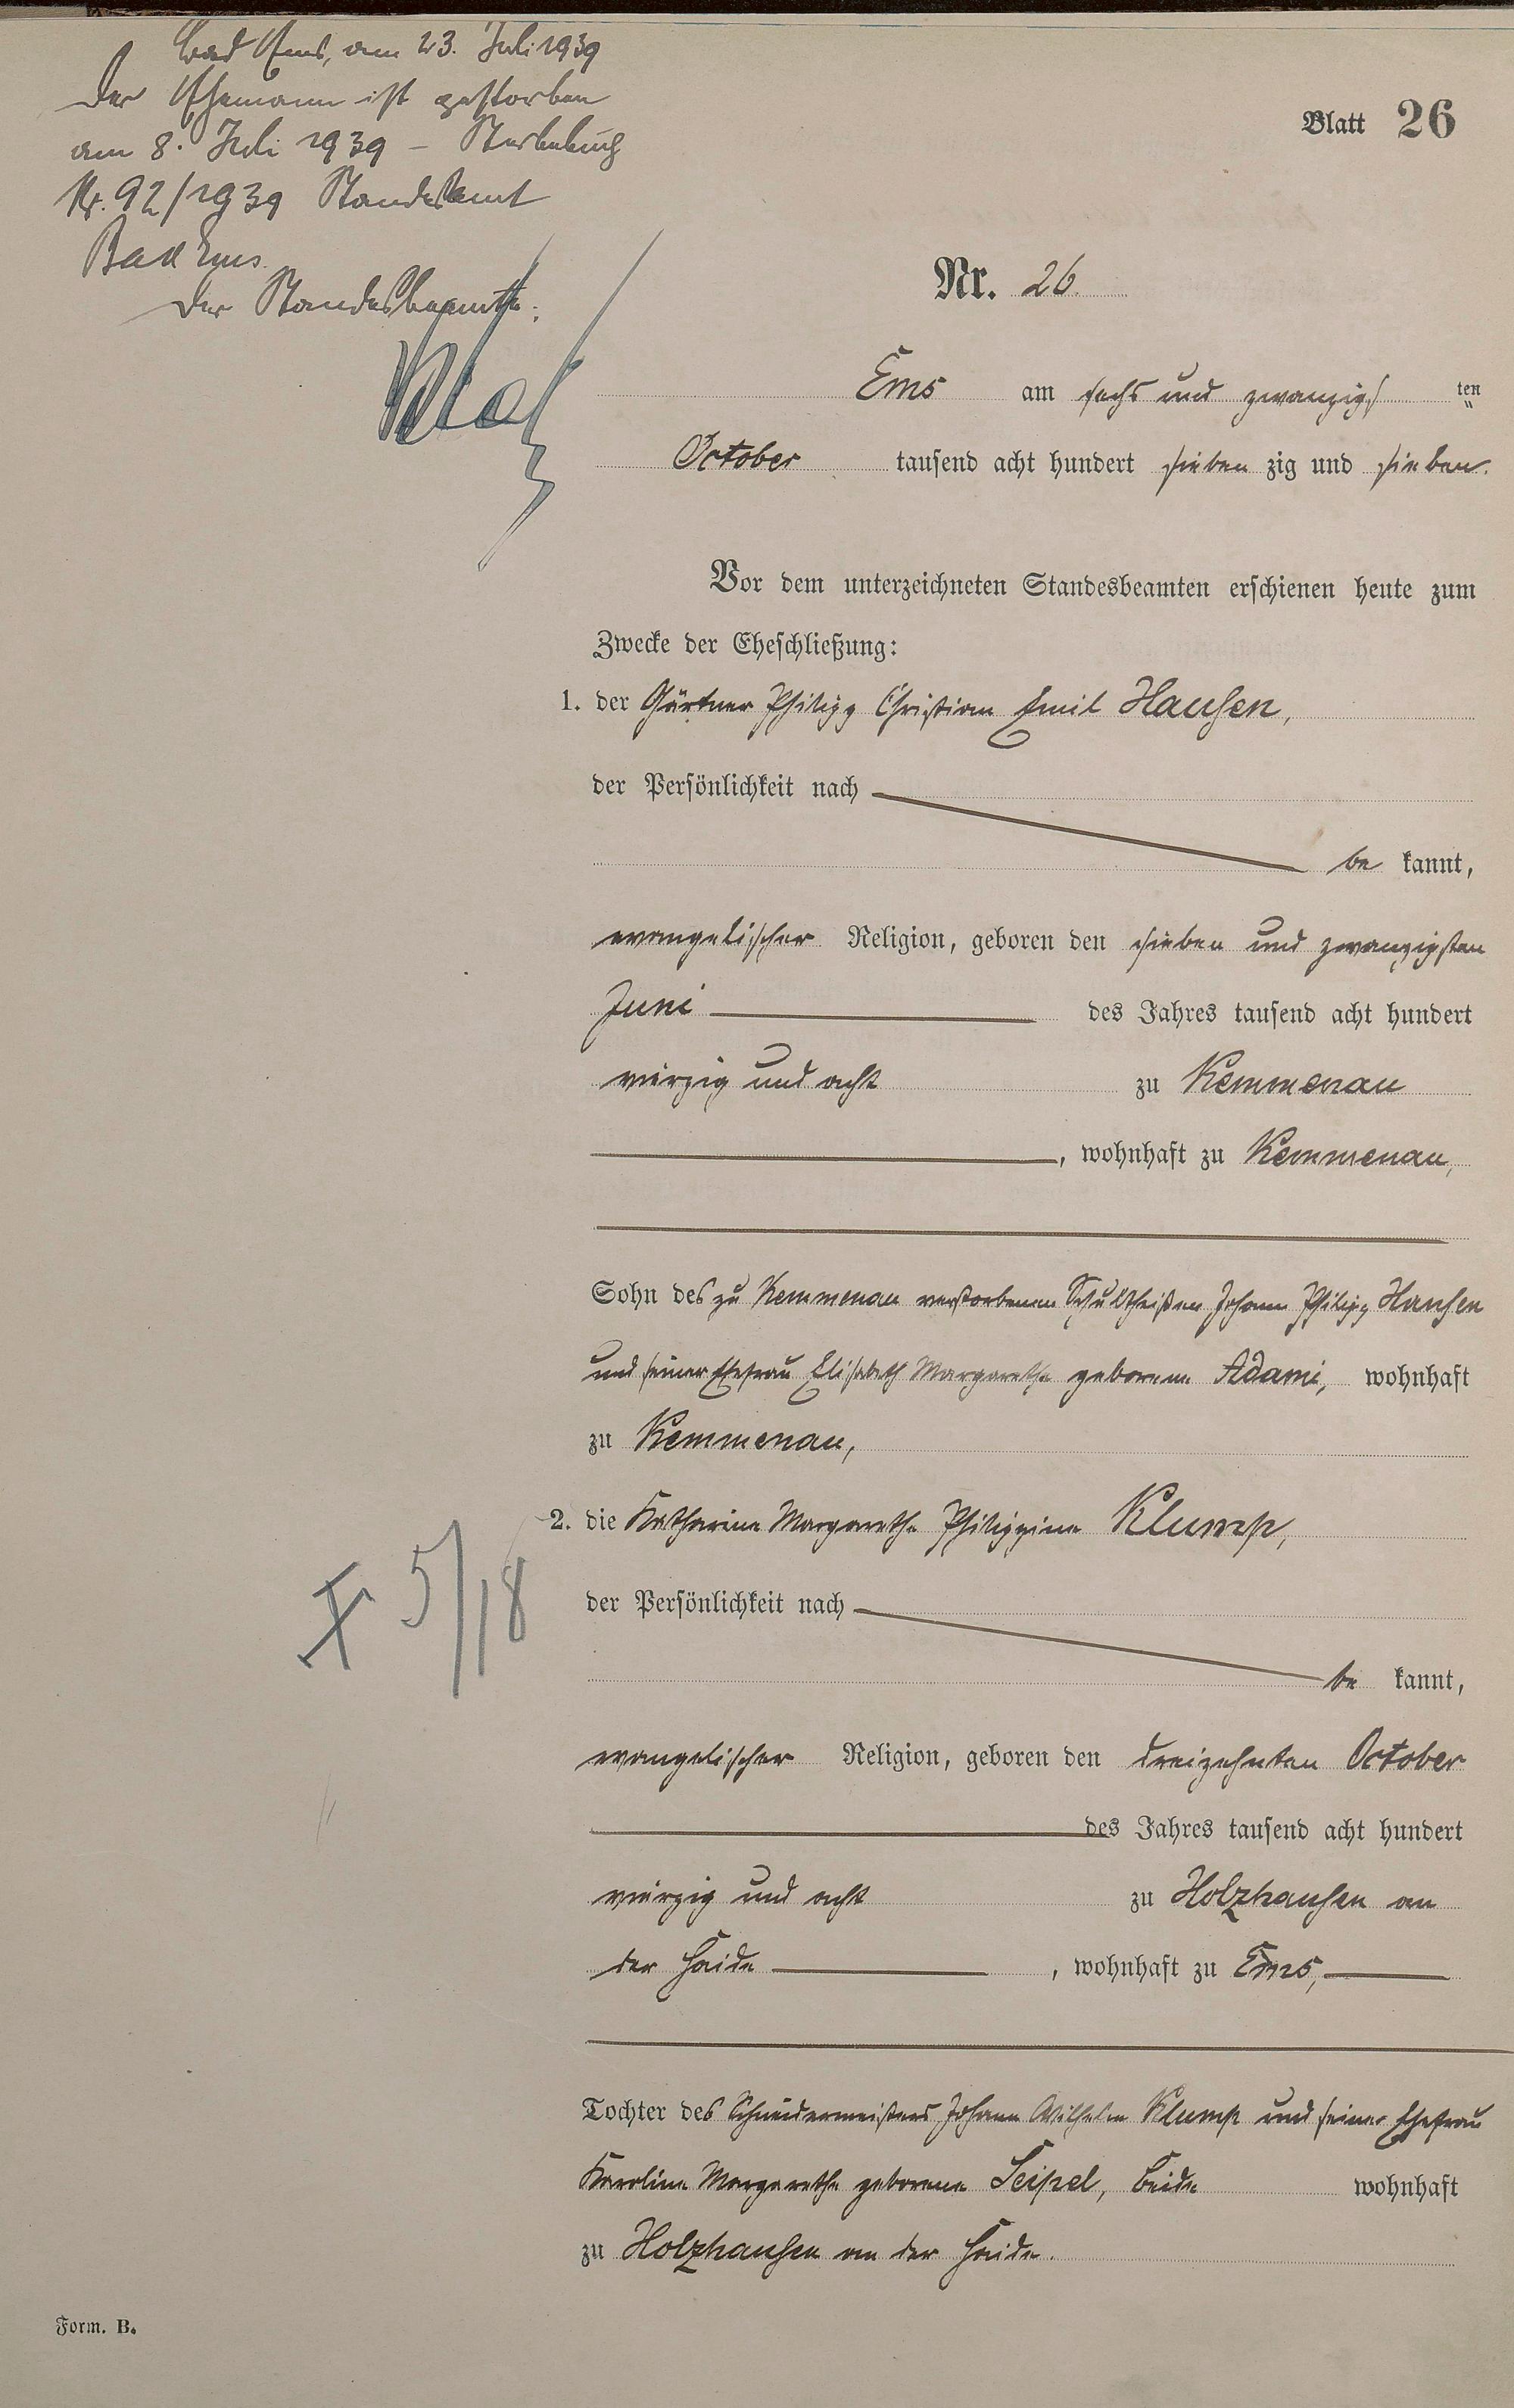 Bad Ems, am 23. Juli 1939
Der Ehemann ist gestorben
am 8. Juli 1939 – Sterbebuch
Nr. 92/1939 Standesamt
Bad Ems.
Der Standesbeamte:
Blatt 26
Nr. 26.
Ems am sechs und zwanzigs ten
October tausend acht hundert sieben zig und sieben.
Vor dem unterzeichneten Standesbeamten erschienen heute zum
Zwecke der Eheschließung:
1. der Gärtner Philipp Christian Emil Hausen,
der Persönlichkeit nach
be kannt,
evangelischer Religion, geboren den sieben und zwanzigsten
Juni des Jahres tausend acht hundert
vierzig und acht zu Kemmenau
, wohnhaft zu Kemmenau,
Sohn des zu Kemmenau verstorbenen Schultheißen Johann Philipp Hausen
und seiner Ehefrau Elisabeth Margarethe geborene Adami, wohnhaft
zu Kemmenau,
2. die Katharine Margarethe Philippine Klump,
X 5/18
der Persönlichkeit nach
be kannt,
evangelischer Religion, geboren den dreizehnten October
des Jahres tausend acht hundert
vierzig und acht zu Holzhausen an
der Haide , wohnhaft zu Ems,
Tochter des Schneidermeisters Johann Wilhelm Klump und seiner Ehefrau
Karoline Margarethe geborene Seipel, beide wohnhaft
zu Holzhausen an der Haide.
Form. B.